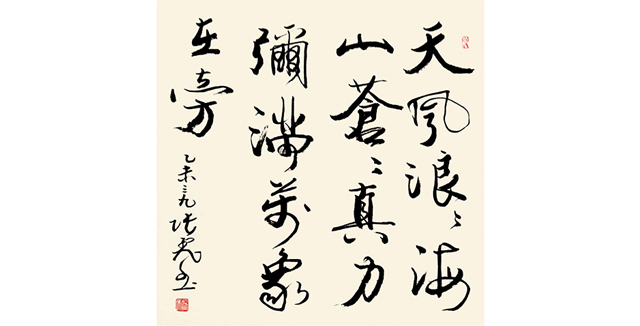 天風浪〻海
山蒼〻真力
彌滿萬象
在旁
乙未